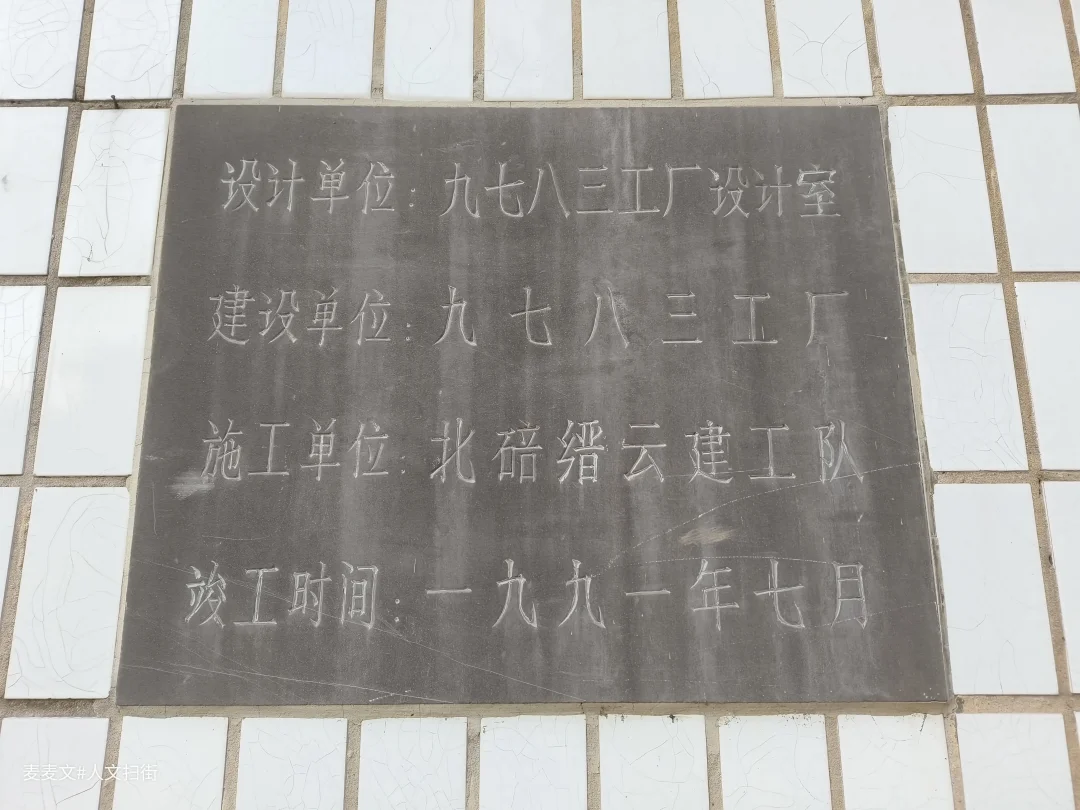 设计单位：九七八三工厂设计室
建设单位：九七八三工厂
施工单位：北碚缙云建工队
竣工时间：一九九一年七月
麦麦文#人文扫街